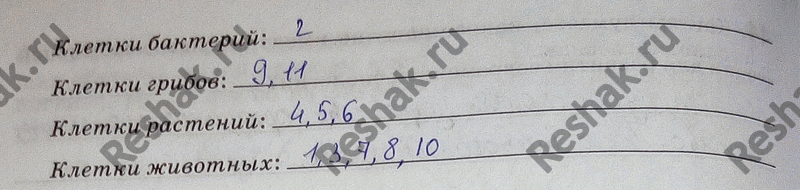 Клетки бактерий: 2
Клетки грибов: 9, 11
Клетки растений: 4, 5, 6
Клетки животных: 1, 3, 7, 8, 10
Reshak.ru
Reshak.ru
Reshak.ru